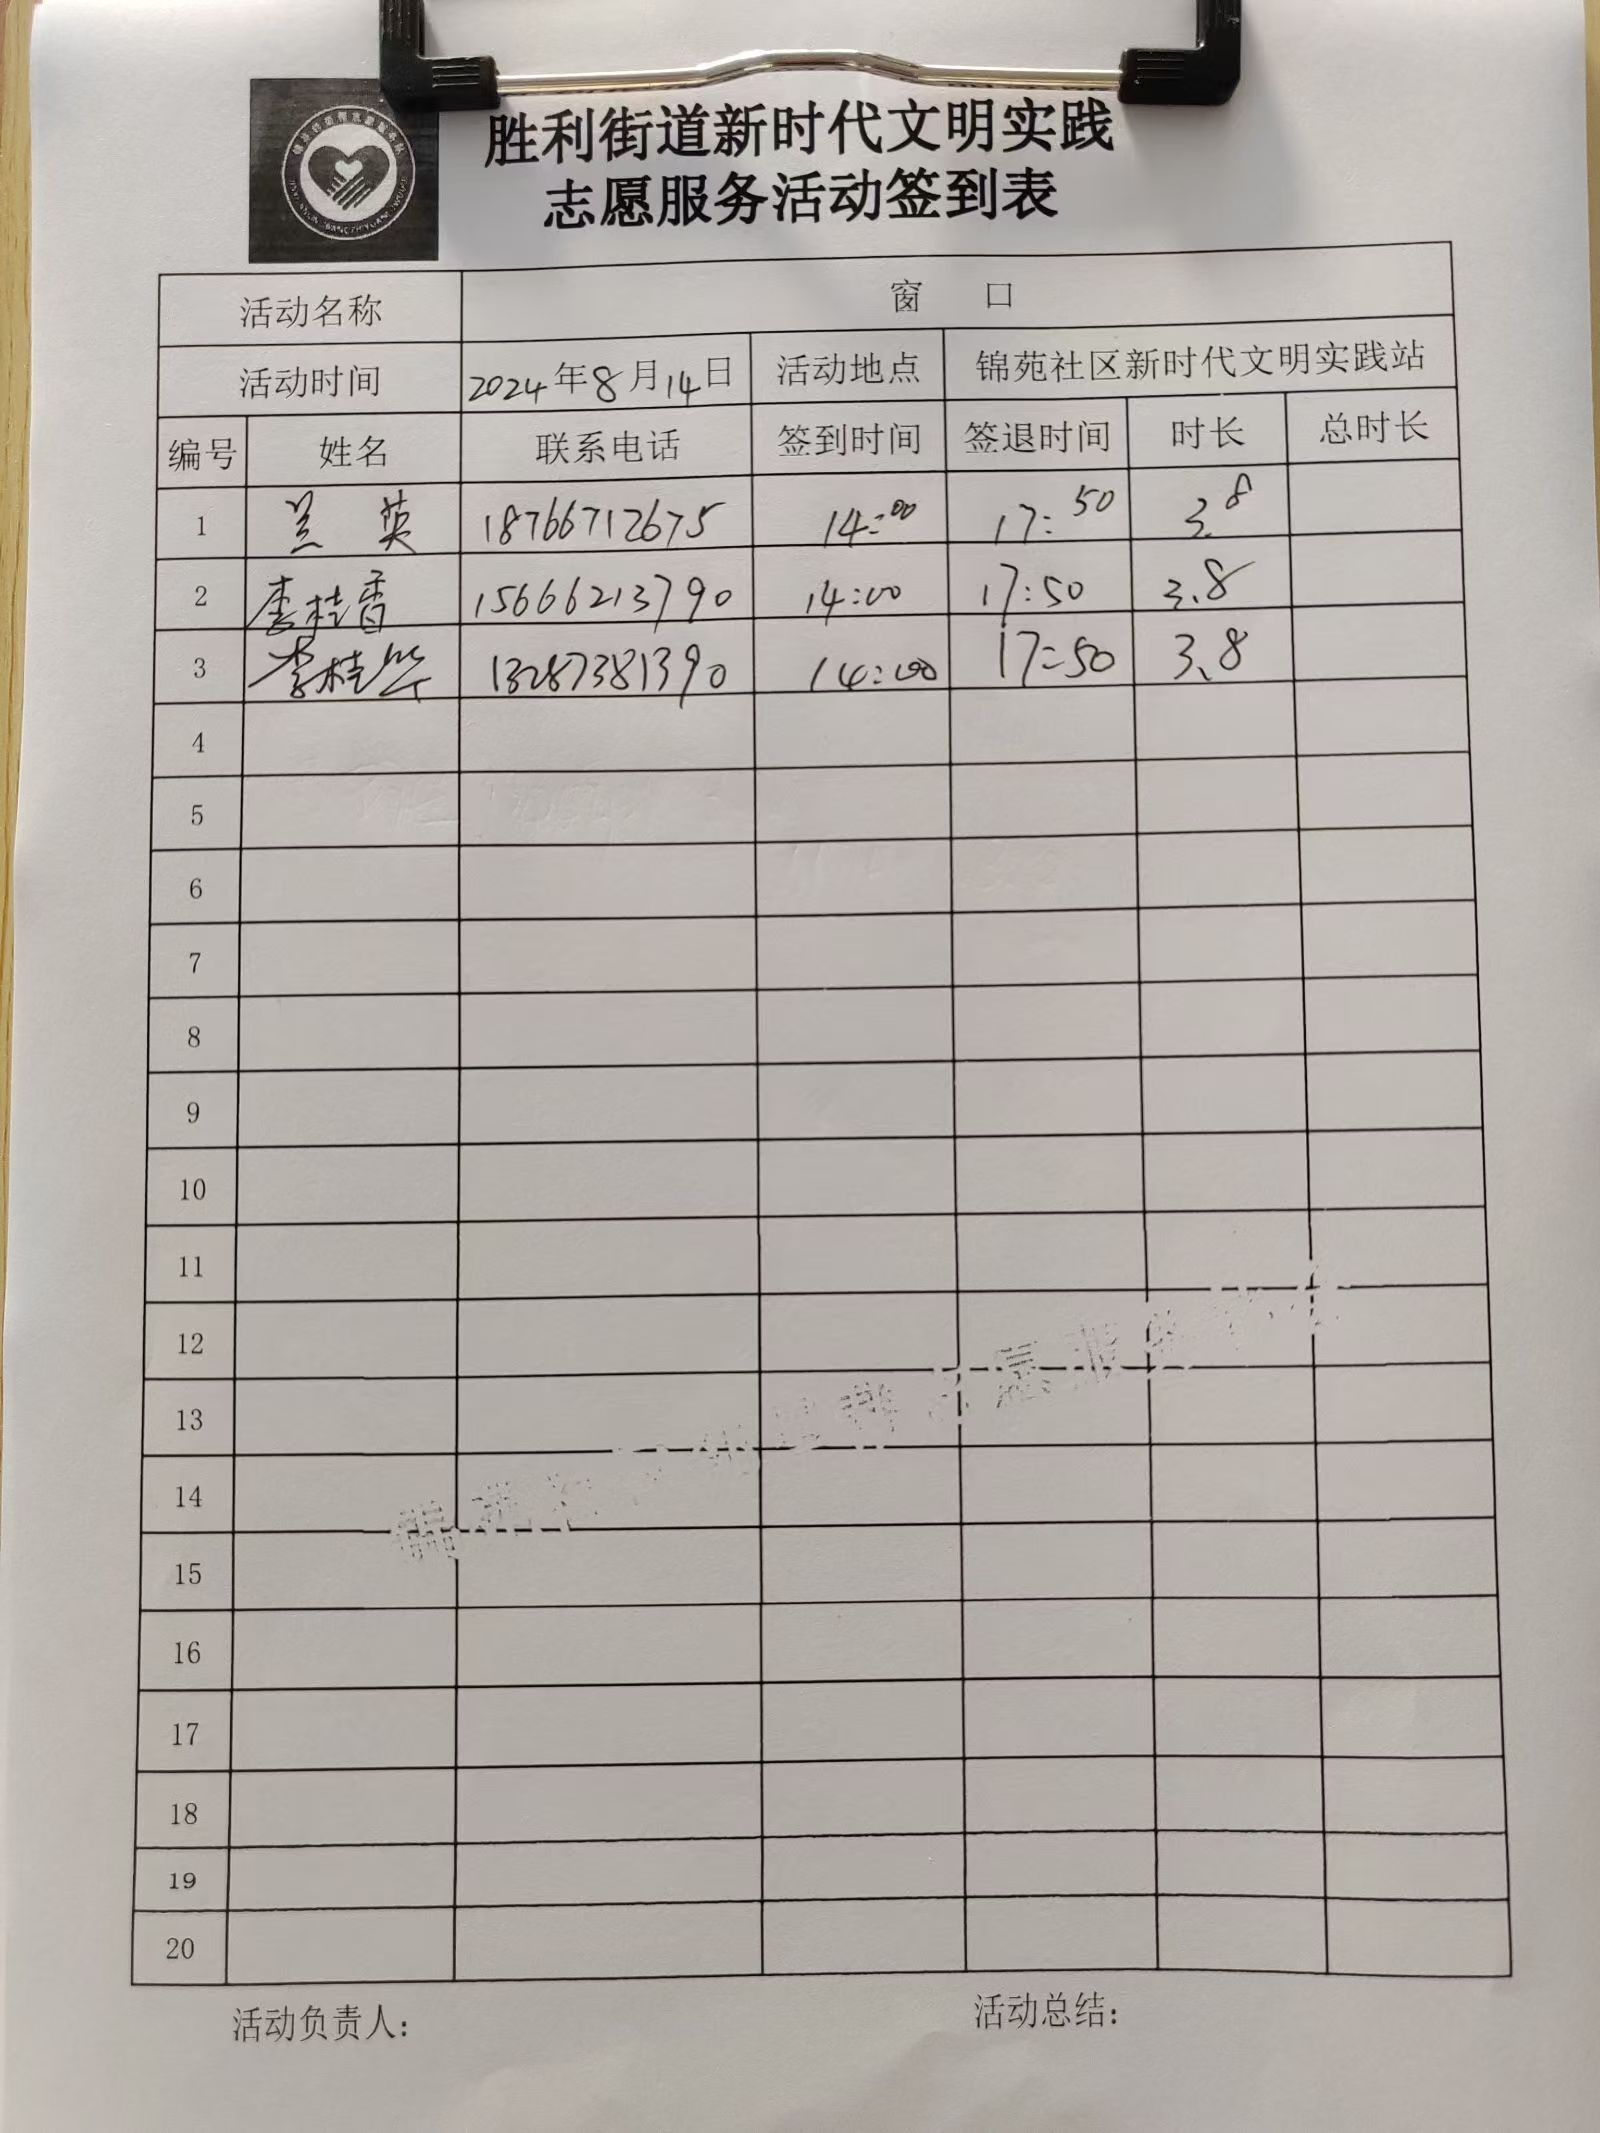 胜利街道新时代文明实践
志愿服务活动签到表
活动名称 窗 口
活动时间 2024年8月14日 活动地点 锦苑社区新时代文明实践站
编号 姓名 联系电话 签到时间 签退时间 时长 总时长
1 兰 英 18766712675 14:00 17:50 3.8
2 李桂香 15666213790 14:00 17:50 3.8
3 李桂华 13287381390 14:00 17:50 3.8
4
5
6
7
8
9
10
11
12
13
14
15
16
17
18
19
20
活动负责人: 活动总结: